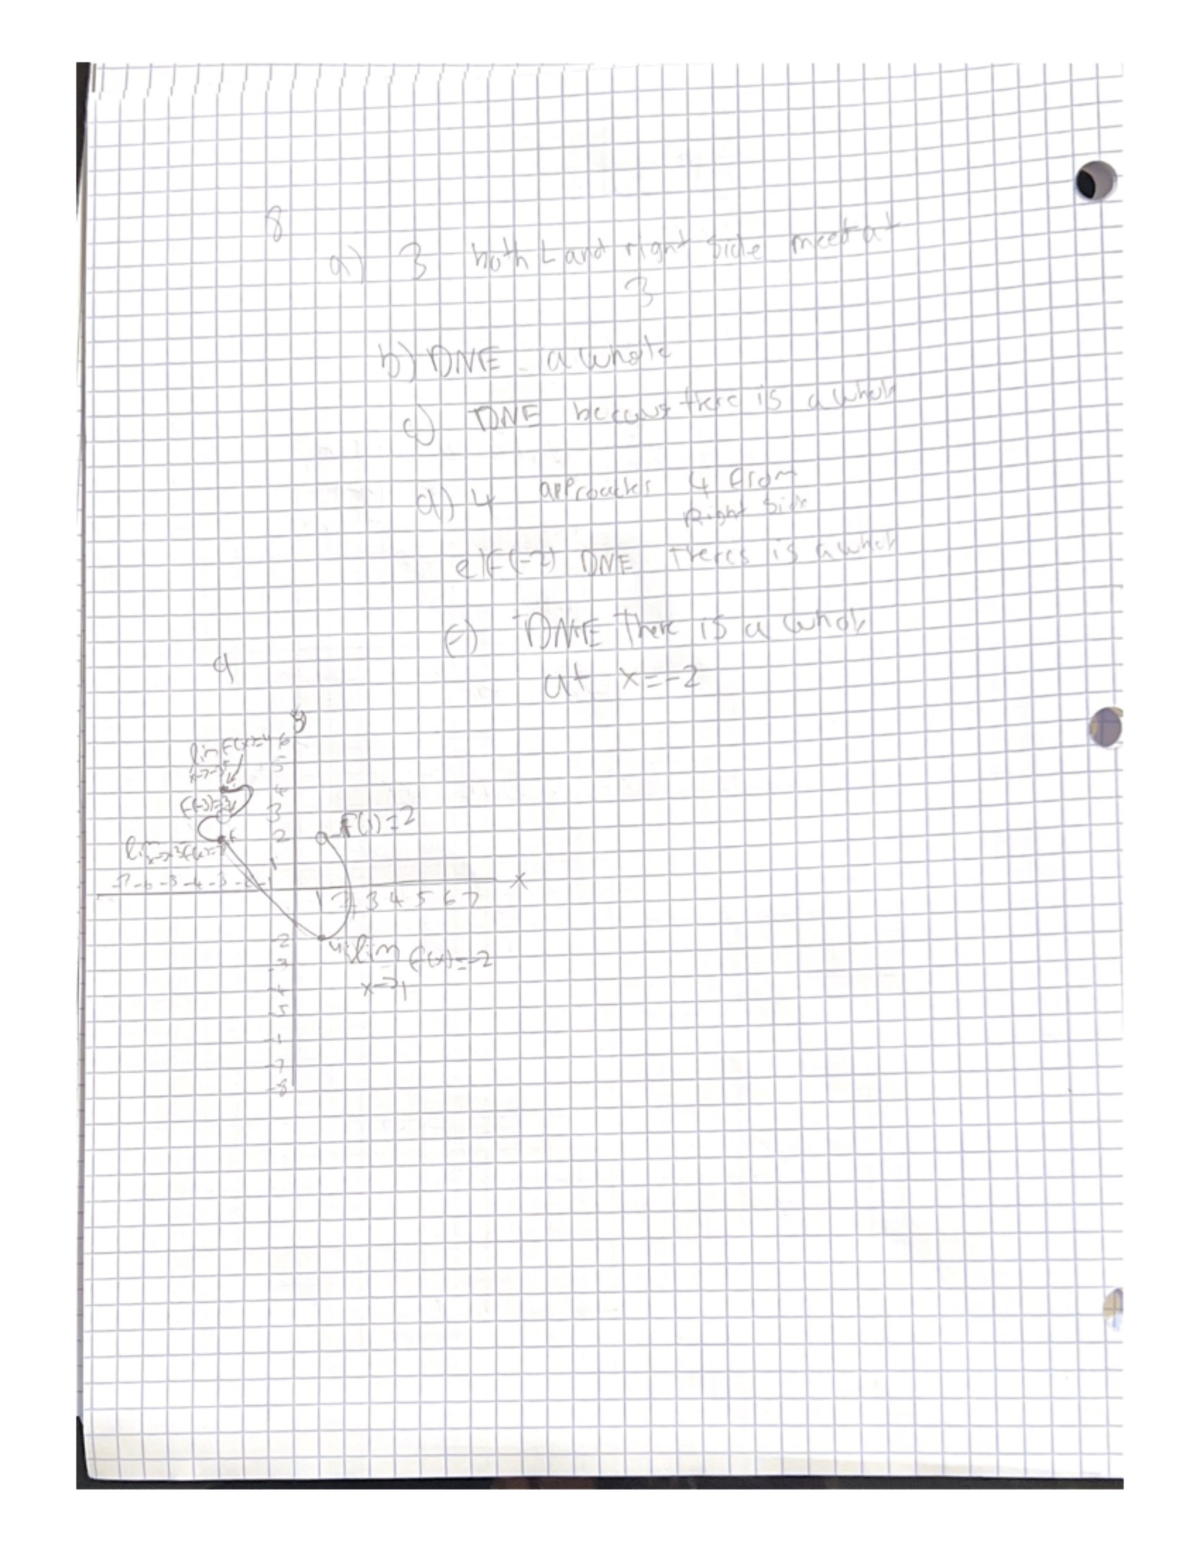 8
a) 3 both L and right side meet at
3
b) DNE a whole
c) DNE because there is a whole
d) 4 approaches 4 from
Right Side
e) F(-2) DNE Theres is a whole
f) DNE There is a whole
at x=-2
9
y
6
5
4
3
2
1
f(1)=2
-7 -6 -5 -4 -3 -2 -1
x
1 2 3 4 5 6 7
-2
-3
-4
-5
-7
-8
lim f(x)=-2
x→1